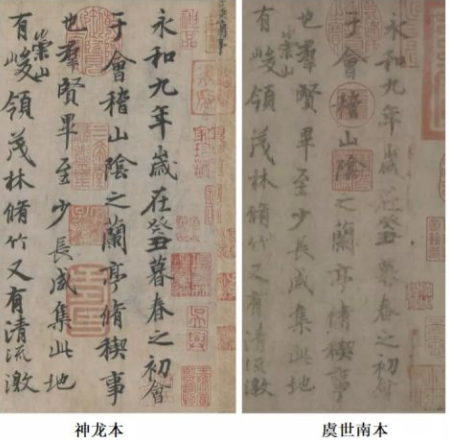 永和九年歲在癸丑暮春之初會
于會稽山陰之蘭亭脩稧事
也羣賢畢至少長咸集此地
有崇山峻領茂林脩竹又有清流激
神龙本
永和九年歲在癸丑暮春之初會
于會稽山陰之蘭亭脩稧事
也羣賢畢至少長咸集此地
有崇山峻領茂林脩竹又有清流激
虞世南本